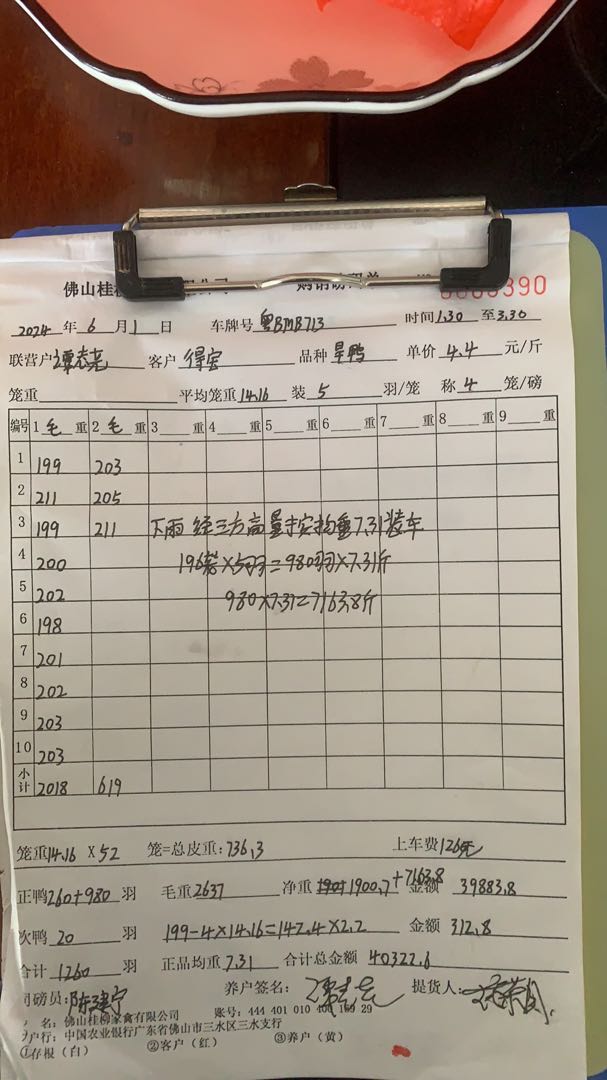 佛山桂柳
390
2024 年 6 月 1 日 车牌号 粤BMB713 时间 1.30 至 3.30
联营户 客户 得宏 品种 旱鸭 单价 4.4 元/斤
笼重 平均笼重 14.16 装 5 羽/笼 称 4 笼/磅
编号 1 毛 重 2 毛 重 3 重 4 重 5 重 6 重 7 重 8 重 9 重
1 199 203
2 211 205
3 199 211 下雨 经三方商量 实均重7.31装车
4 200 196笼×5羽=980羽×7.31斤
5 202 980×7.31=7163.8斤
6 198
7 201
8 202
9 203
10 203
小计 2018 619
笼重 14.16 X 52 笼=总皮重: 736.3 上车费 126元
正鸭 260+980 羽 毛重 2637 净重 1900.7 +7163.8 金额 39883.8
次鸭 20 羽 199-4×14.16=142.4×2.2 金额 312.8
合计 1260 羽 正品均重 7.31 合计总金额 40322.6
司磅员: 陈建宁 养户签名: 提货人:
名: 佛山桂柳家禽有限公司 账号: 444 401 010 400 29
户行: 中国农业银行广东省佛山市三水区三水支行
①存根（白） ②客户（红） ③养户（黄）